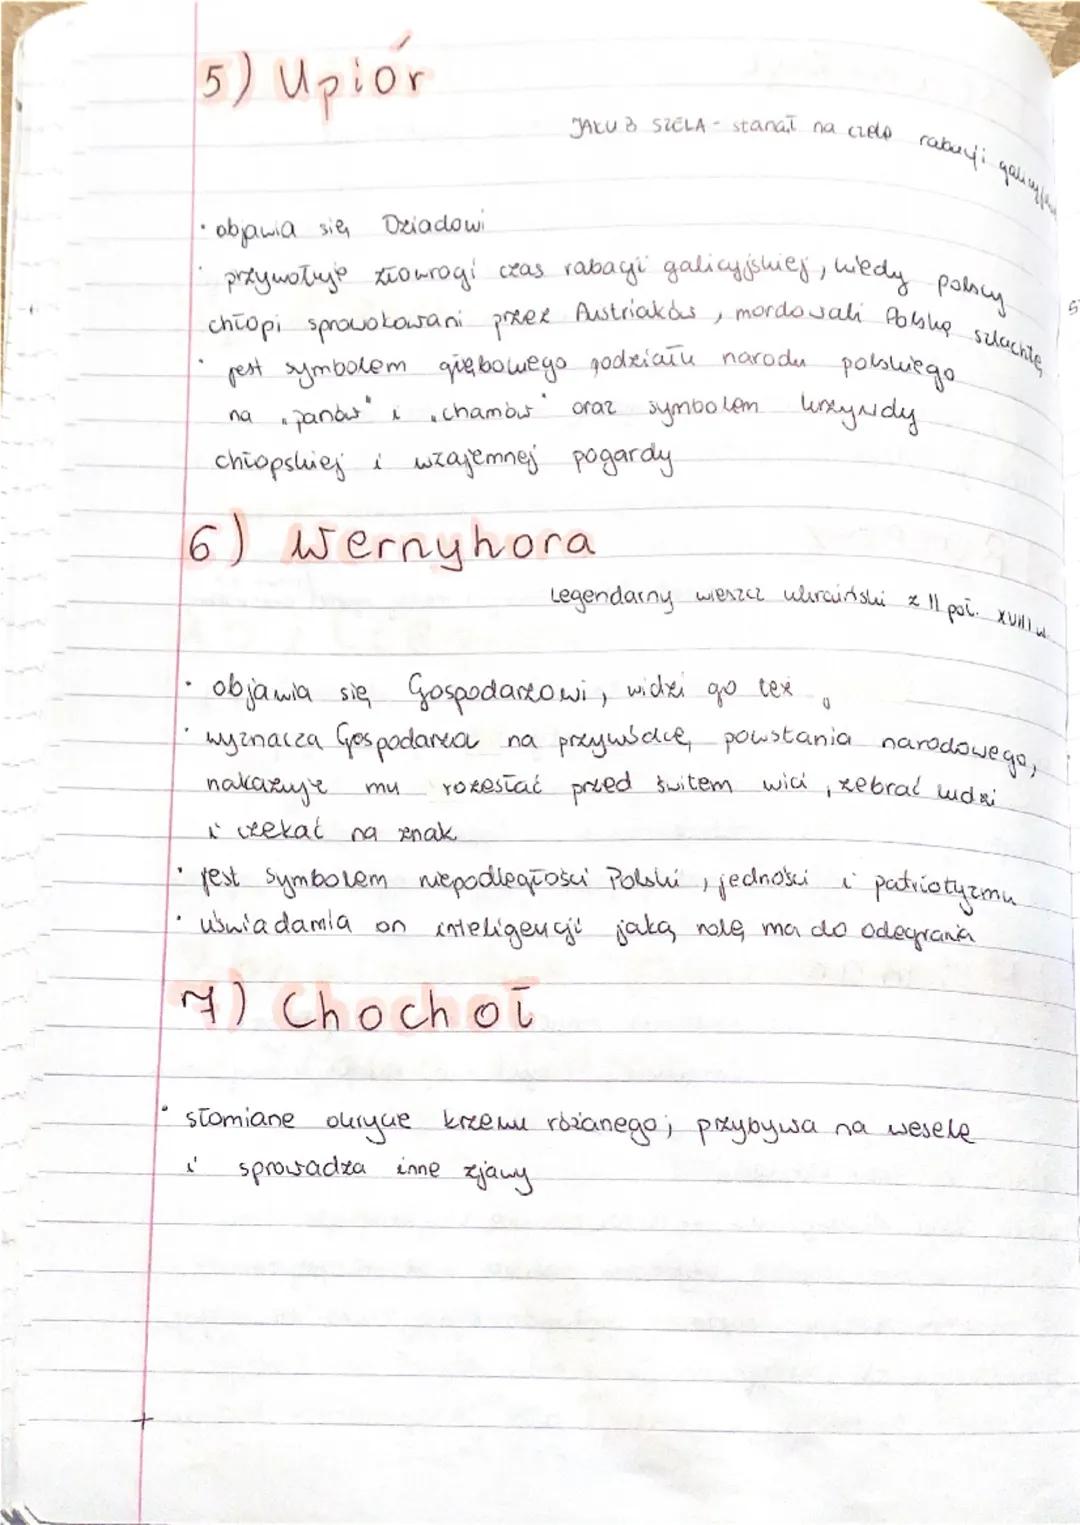 5) Upiór
JAKUB SZELA - stanął na czele rabacji galicyjskiej
• objawia się Dziadowi
• przywołuje złowrogi czas rabacji galicyjskiej, kiedy polscy
chłopi sprowokowani przez Austriaków, mordowali Polską szlachtę
• jest symbolem głębokiego podziału narodu polskiego
na "panów" i "chamów" oraz symbolem krzywdy
chłopskiej i wzajemnej pogardy
6) Wernyhora
Legendarny wieszcz ukraiński z II poł. XVIII w.
• objawia się Gospodarzowi, widzi go też
• wyznacza Gospodarza na przywódcę powstania narodowego,
nakazuje mu rozesłać przed świtem wici, zebrać ludzi
i czekać na znak
• jest symbolem niepodległości Polski, jedności i patriotyzmu
• uświadamia on inteligencji jaką rolę ma do odegrania
7) Chochoł
• słomiane okrycie krzewu różanego; przybywa na wesele
i sprowadza inne zjawy